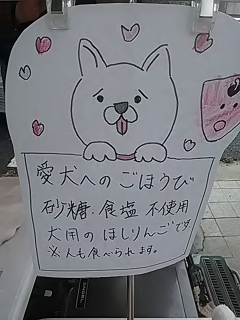 愛犬へのごほうび
砂糖・食塩 不使用
犬用のほしりんごです
※人も食べられます。